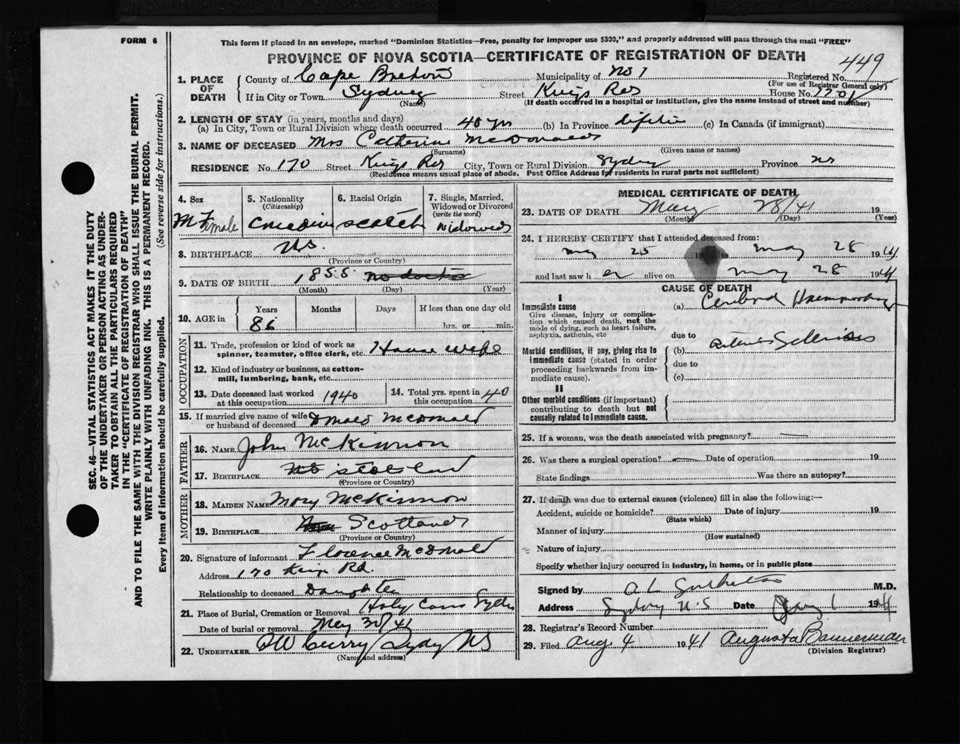 FORM 6
This form if placed in an envelope, marked "Dominion Statistics—Free, penalty for improper use $300," and properly addressed will pass through the mail "FREE"
PROVINCE OF NOVA SCOTIA—CERTIFICATE OF REGISTRATION OF DEATH
449
1. PLACE OF DEATH
County of Cape Breton Municipality of No 1 Registered No.
(For use of Registrar General only)
If in City or Town Sydney Street Kings House No.
(Name) (If death occurred in a hospital or institution, give the name instead of street and number)
2. LENGTH OF STAY (in years, months and days)
(a) In City, Town or Rural Division where death occurred 40 yrs (b) In Province (c) In Canada (if immigrant)
3. NAME OF DECEASED Mrs Catherine McDonald
(Surname) (Given name or names)
RESIDENCE No. 170 Street Kings City, Town or Rural Division Sydney Province NS
(Residence means usual place of abode. Post Office Address for residents in rural parts not sufficient)
4. Sex
Female
5. Nationality (Citizenship)
Canadian
6. Racial Origin
Scotch
7. Single, Married, Widowed or Divorced (write the word)
Widowed
8. BIRTHPLACE N.S.
(Province or Country)
9. DATE OF BIRTH 1855
(Month) (Day) (Year)
10. AGE in Years Months Days If less than one day
86 hrs. or min.
OCCUPATION
11. Trade, profession or kind of work as spinner, teamster, office clerk, etc. House wife
12. Kind of industry or business, as cotton-mill, lumbering, bank, etc.
13. Date deceased last worked at this occupation 1940
14. Total yrs. spent in this occupation 40
15. If married give name of wife or husband of deceased McDonald
FATHER
16. NAME John McKinnon
17. BIRTHPLACE
(Province or Country)
MOTHER
18. MAIDEN NAME Mary McKinnon
19. BIRTHPLACE Scotland
(Province or Country)
20. Signature of informant Florence McDonald
Address 170 Kings Rd.
Relationship to deceased Daughter
21. Place of Burial, Cremation or Removal Holy Cross
Date of burial or removal May 30/41
22. UNDERTAKER Curry Sydney NS
(Name and address)
MEDICAL CERTIFICATE OF DEATH
23. DATE OF DEATH May 28/41 19
(Month) (Day) (Year)
24. I HEREBY CERTIFY that I attended deceased from:
May 25 19 to May 28 1941
and last saw h er alive on May 28 1941
CAUSE OF DEATH
I
Immediate cause
Give disease, injury or complication which caused death, not the mode of dying, such as heart failure, asphyxia, asthenia, etc
(a) Cerebral Haemorrhage
due to
Morbid conditions, if any, giving rise to immediate cause (stated in order proceeding backwards from immediate cause).
(b)
due to
(c)
II
Other morbid conditions (if important) contributing to death but not causally related to immediate cause.
25. If a woman, was the death associated with pregnancy?
26. Was there a surgical operation? Date of operation 19
State findings Was there an autopsy?
27. If death was due to external causes (violence) fill in also the following:—
Accident, suicide or homicide? Date of injury 19
(State which)
Manner of injury
(How sustained)
Nature of injury
Specify whether injury occurred in industry, in home, or in public place
Signed by M.D.
Address Sydney N.S Date 1 19
28. Registrar's Record Number
29. Filed Aug 4 1941 Augusta Bannerman
(Division Registrar)
SEC. 46—VITAL STATISTICS ACT MAKES IT THE DUTY
OF THE UNDERTAKER OR PERSON ACTING AS UNDER-
TAKER TO OBTAIN ALL THE PARTICULARS REQUIRED
IN THE "CERTIFICATE OF REGISTRATION OF DEATH"
AND TO FILE THE SAME WITH THE DIVISION REGISTRAR WHO SHALL ISSUE THE BURIAL PERMIT.
WRITE PLAINLY WITH UNFADING INK. THIS IS A PERMANENT RECORD.
Every item of information should be carefully supplied. (See reverse side for instructions).